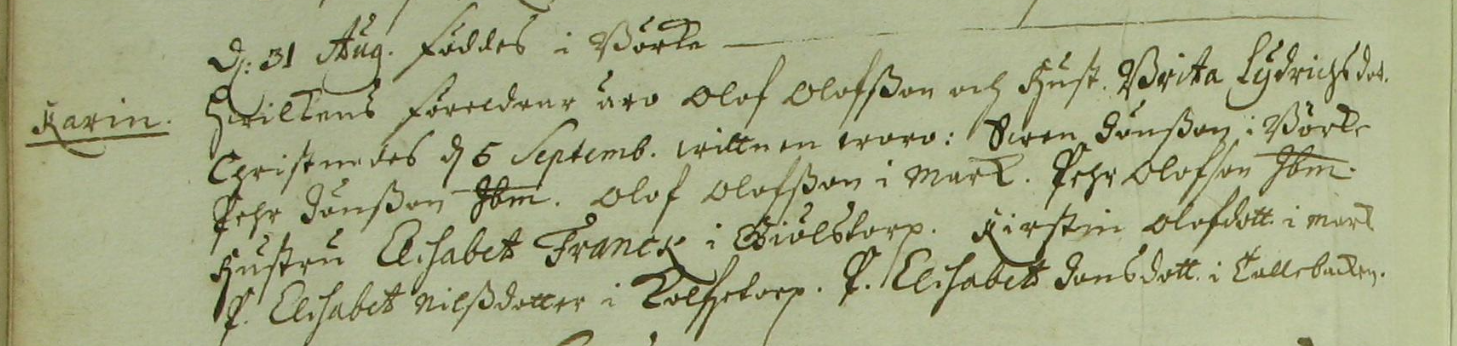 D. 31 Aug. föddes i Börke
Karin. Hvilkens föreldrar äro Olof Olofßon och Hust. Brita Lydrichsdot.
Christnades d 5 Septemb. wittnen woro: Swen Jönßon i Börke
Pehr Jönßon Ibm. Olof Olofßon i Mark. Pehr Olofson Ibm.
Hustru Elisabet Franck i Giölstorp. Kirstin Olofdott. i Mark
P. Elisabet Nilßdotter i P. Elisabet Jonsdott. i Tallebacken.